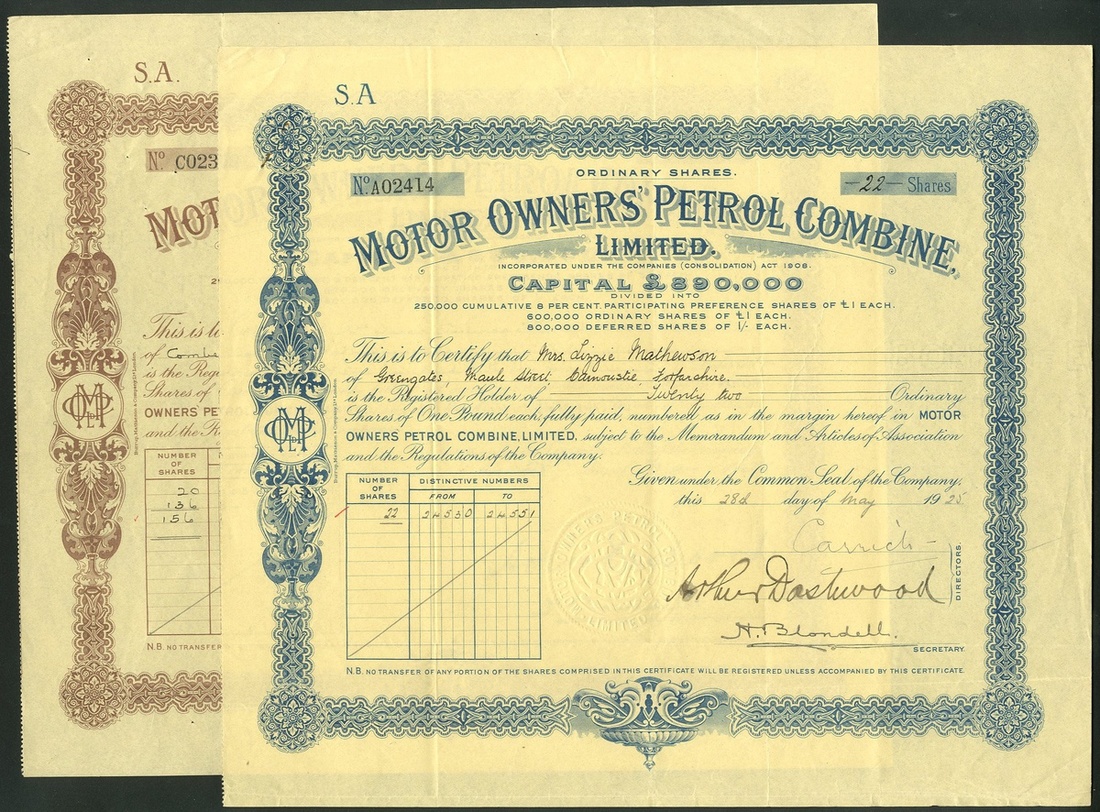 S.A.
Nº C023
MOT
This is to
of Combe
is the Regi
Shares of
OWNERS' PE
and the R
NUMBER OF SHARES
20
136
156
N.B. NO TRANSFER
S.A
Nº A02414
ORDINARY SHARES.
—22— Shares
MOTOR OWNERS' PETROL COMBINE,
LIMITED.
INCORPORATED UNDER THE COMPANIES (CONSOLIDATION) ACT 1908.
CAPITAL £890,000
DIVIDED INTO
250,000 CUMULATIVE 8 PER CENT. PARTICIPATING PREFERENCE SHARES OF £1 EACH.
600,000 ORDINARY SHARES OF £1 EACH.
800,000 DEFERRED SHARES OF 1/- EACH.
This is to Certify that Mrs. Lizzie Mathewson
of Greengates, Maule Street, Carnoustie, Forfarshire.
is the Registered Holder of Twenty two Ordinary
Shares of One Pound each, fully paid, numbered as in the margin hereof, in MOTOR
OWNERS PETROL COMBINE, LIMITED, subject to the Memorandum and Articles of Association
and the Regulations of the Company.
NUMBER OF SHARES DISTINCTIVE NUMBERS
FROM TO
22 24530 24551
Given under the Common Seal of the Company,
this 28th day of May 1925
MOTOR OWNERS PETROL COMBINE LIMITED
Carrick
Arthur Dashwood
DIRECTORS.
H. Blondell.
SECRETARY
N.B. NO TRANSFER OF ANY PORTION OF THE SHARES COMPRISED IN THIS CERTIFICATE WILL BE REGISTERED UNLESS ACCOMPANIED BY THIS CERTIFICATE.